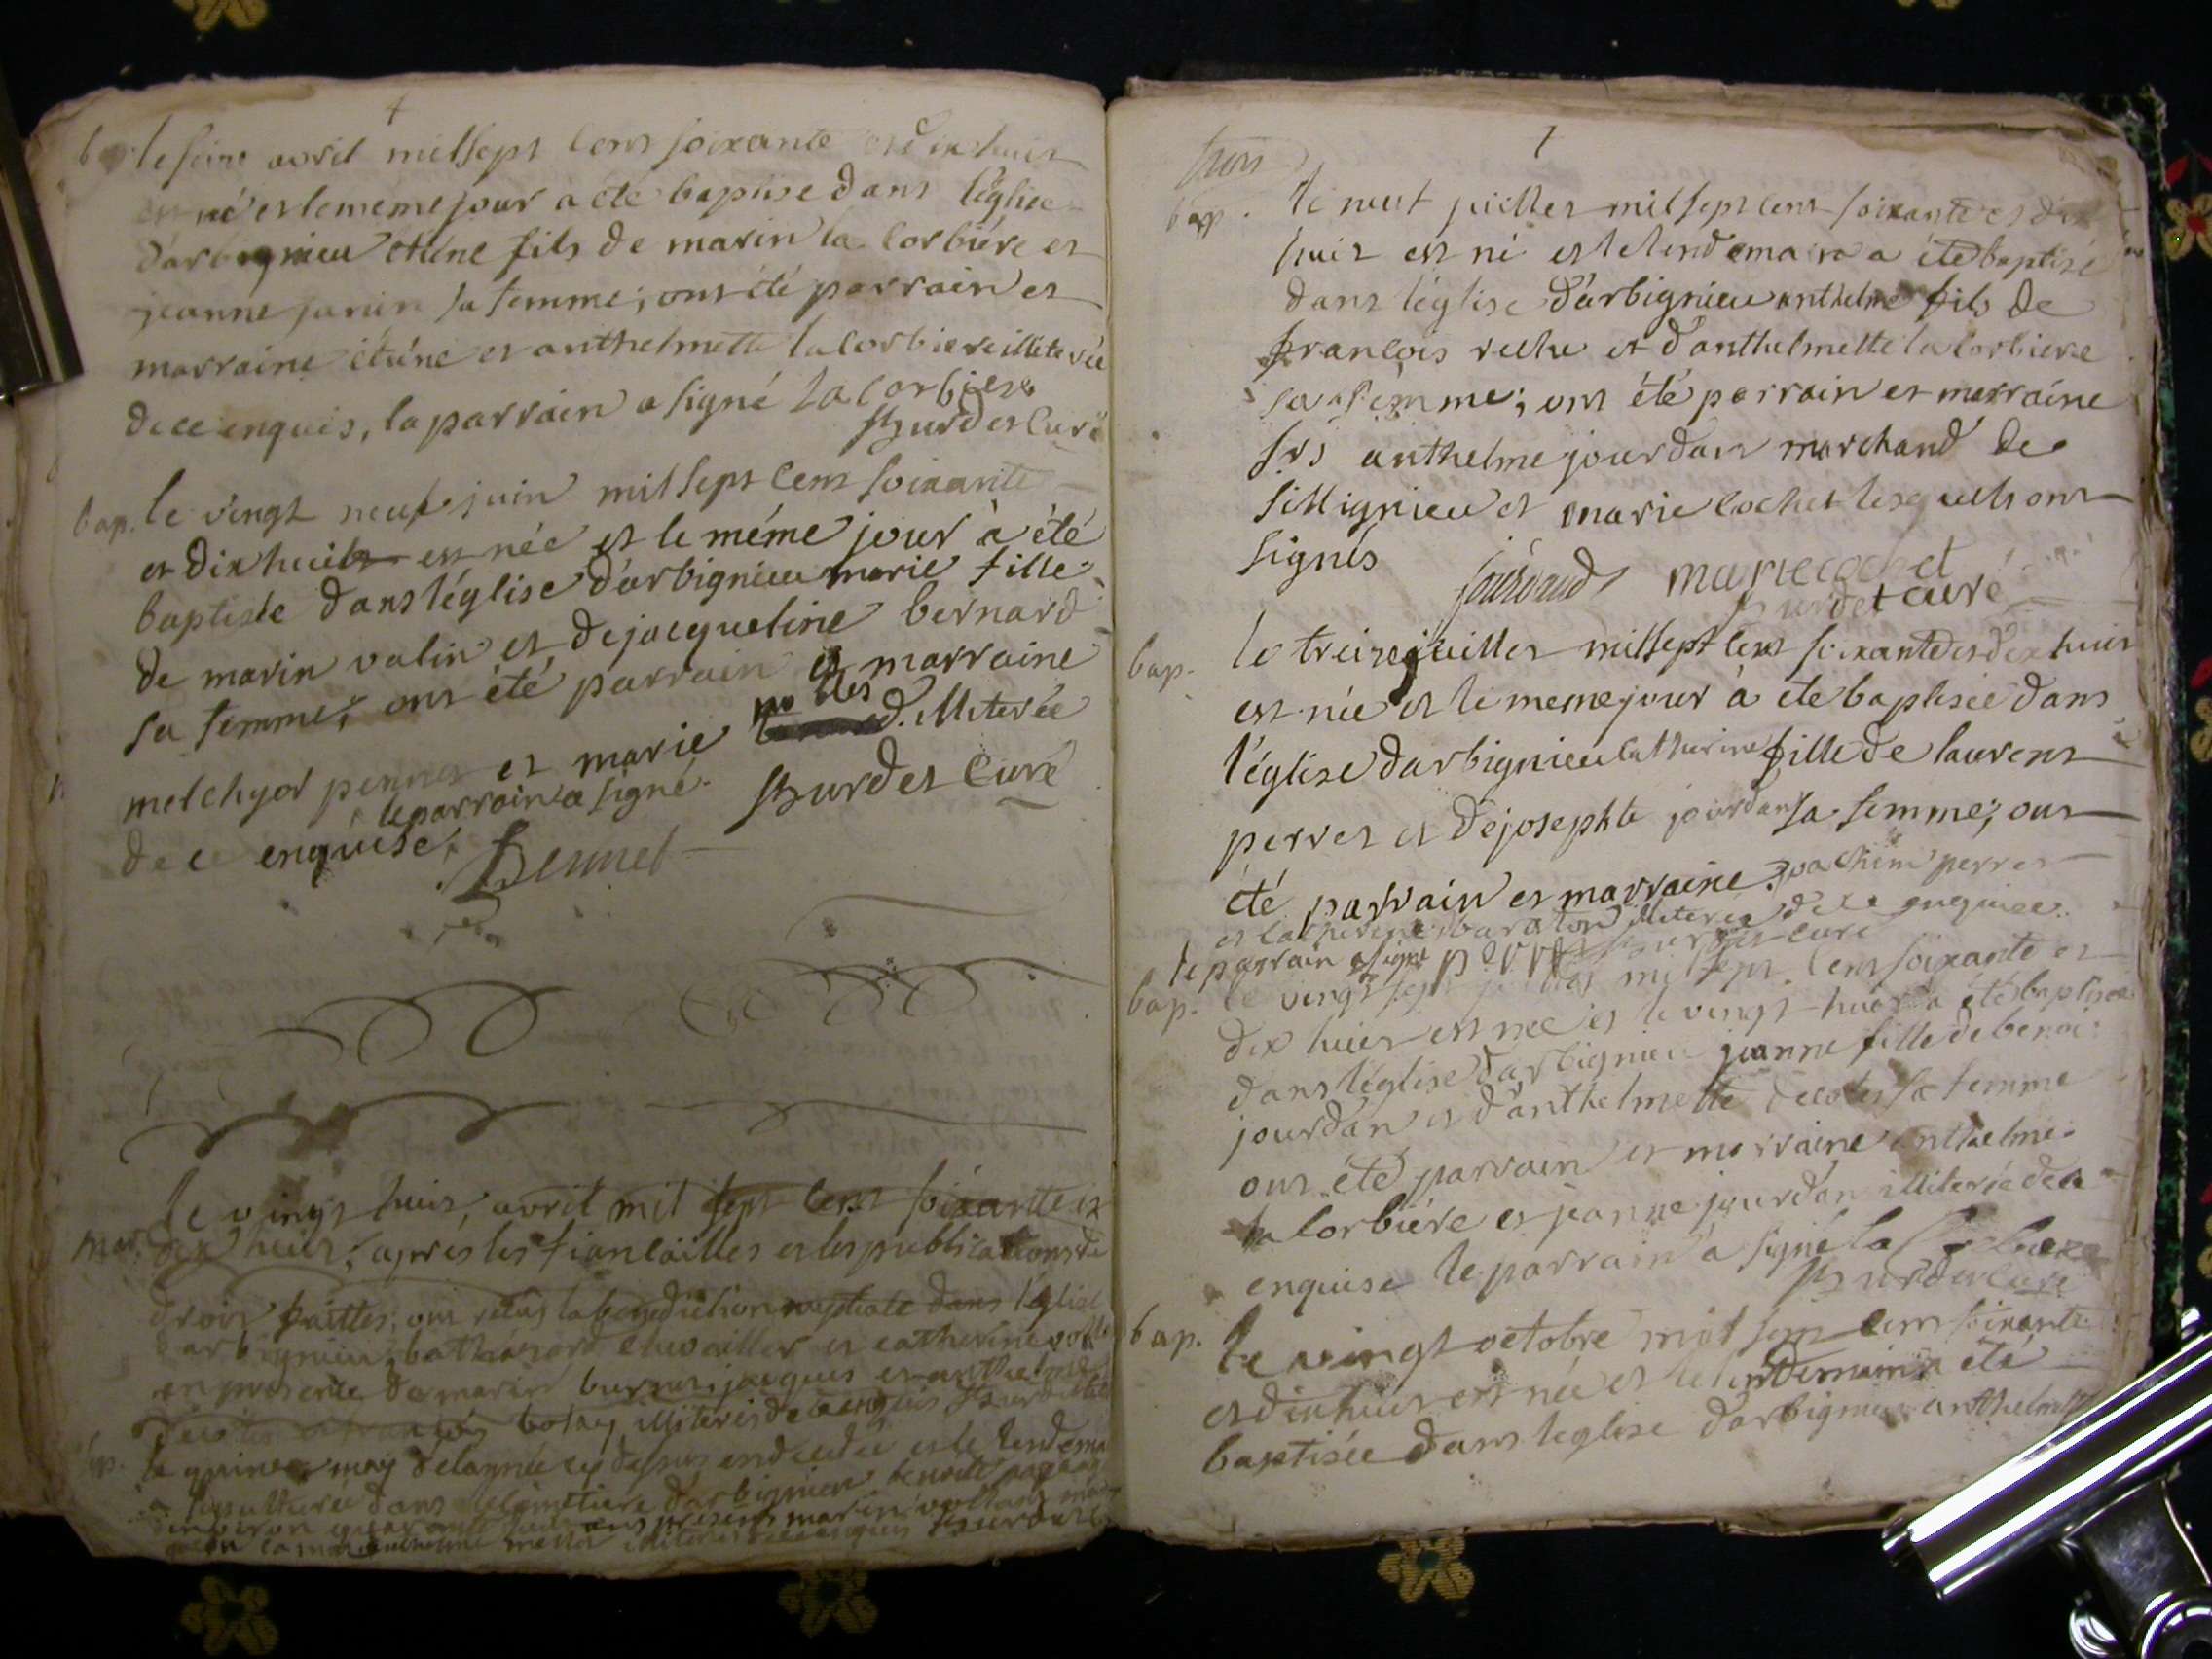 bap. le seize avril mil sept cens soixante et dix huit
est né et le meme jour a eté baptisé dans l'église
d'arbignieu étiene fils de marin la corbiére et
jeanne janin sa femme; ont été parrain et
marraine étiéne et anthelmette la corbiere illiterée
de ce enquis, la parrain a signé la corbiere
hurdet Curé
bap. le vingt neuf juin mil sept cens soixante
et dix huit est née et le méme jour à été
baptisée dans l'église d'arbignieu marie fille
de marin valin et de jacqueline bernard
sa femme; ont été parrain et marraine
melchyor pennet et marie illiterée
de ce enquise, le parrain a signé. hurdet Curé
Pennet
mar. le vingt huit, avril mil sept cens soixante et
dix huit, après les fiancailles et les publications de
droit faittes, ont reçus la benediction nuptiale dans l'église
d'arbignieu, chevailler et catherine
en presence de marin jacques et anthelme
illiterés de ce enquis hurdet
sep. le quinze may de l'année cy dessus et le lendemain
a sepulturée dans le cimetiere d'arbignieu benoite
d'environ quarante ans présens marin
illiterés de ce enquis hurdet
trois
bap. le neuf juillet mil sept cens soixante et dix
huit est né et le lendemain a été baptisé
dans l'église d'arbignieu anthelme fils de
françois et d'anthelmette la corbiere
sa femme; ont été parrain et marraine
srs anthelme jourdan marchand de
sillignieu et marie cochet lesquels ont
signés jourdand marie cochet
hurdet curé
bap. le treize juillet mil sept cens soixante et dix huit
est née et le meme jour à été baptisée dans
l'église d'arbignieu catherine fille de laurent
perret et de josephte jourdan sa femme; ont
été parrain et marraine joachim perret
et catherine baraton illiterée de ce enquise
le parrain a signé perret hurdet curé
bap. le vingt sept juillet mil sept cens soixante et
dix huit est née et le vingt huit a été baptisée
dans l'église d'arbignieu jeanne fille de benoi
jourdan et d'anthelmette sa femme
ont été parrain et marraine anthelme
la corbiére et jeanne jourdan illiterée de ce
enquise le parrain a signé la corbiere
hurdet curé
bap. le vingt octobre mil sept cens soixante
et dix huit est née et le lendemain a été
baptisée dans l'eglise d'arbignieu anthelmette